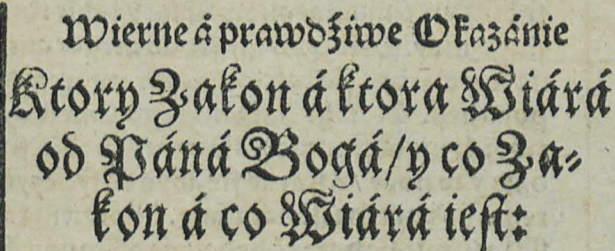 Wierne á prawdźiwe Okazánie
Ktory Zakon á ktora Wiárá
od Páná Bogá/ y co Za⸗
kon á co Wiárá ieſt: